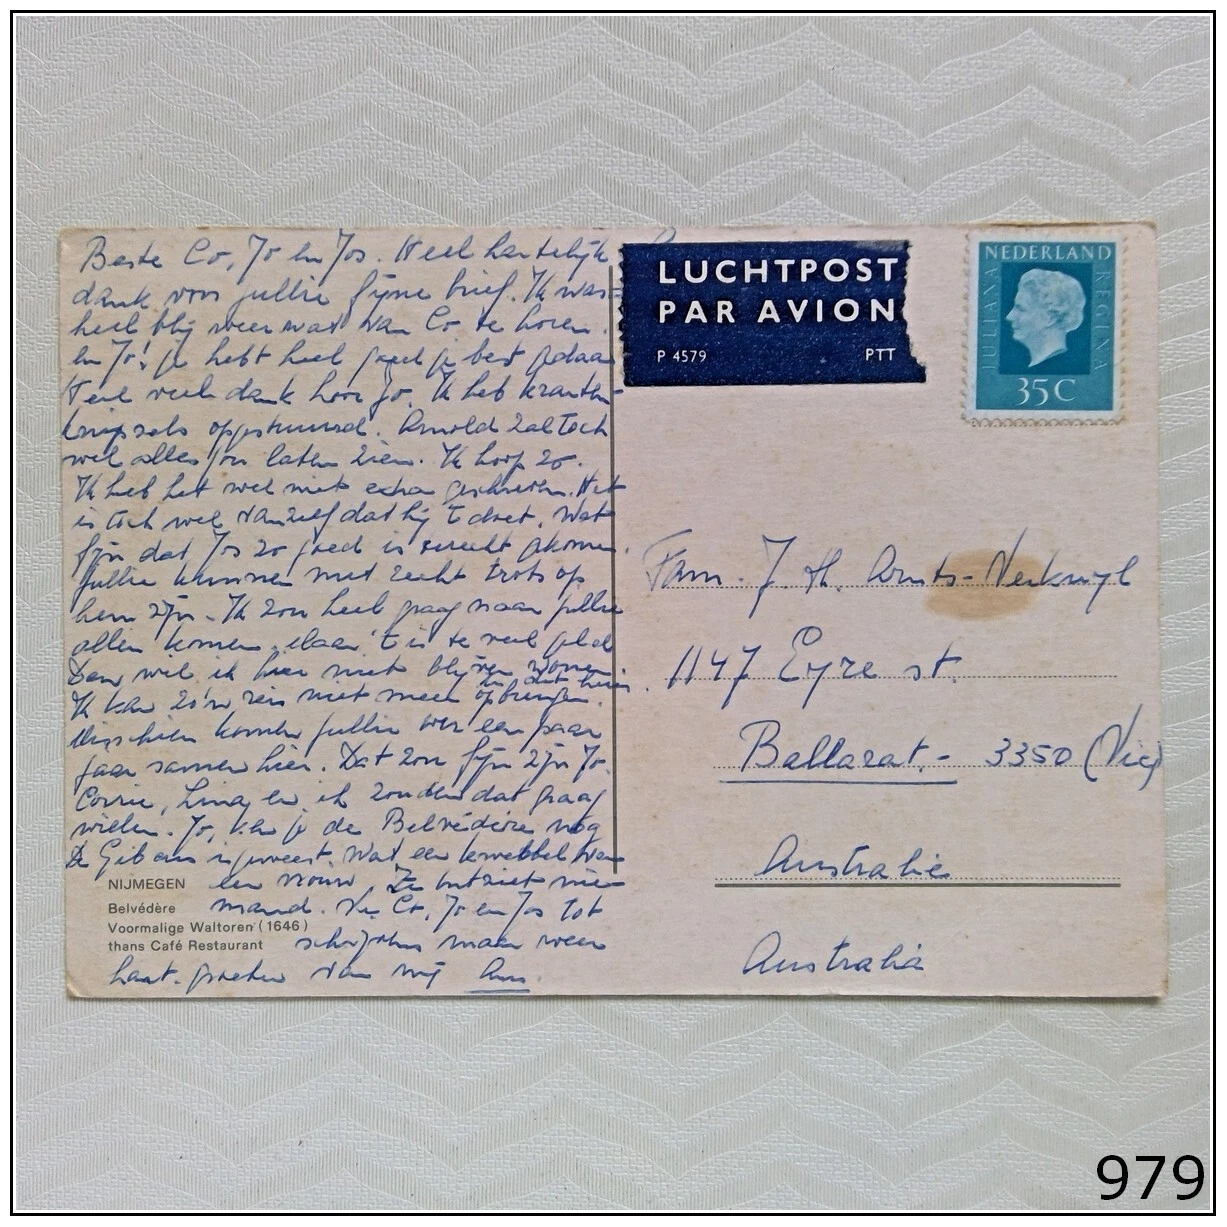 Beste Co, Jo en Jos. Veel hartelijk
dank voor jullie fijne brief. Ik was
heel blij weer wat van Co te horen.
En Jo! je hebt heel goed je best gedaan
Veel veel dank hoor Jo. Ik heb kranten-
knipsels opgestuurd. Arnold zal toch
wel alles jou laten zien. Ik hoop zo.
Ik heb het wel niet extra geschreven. Het
is toch wel vanzelf dat hij 't doet. Wat
fijn dat Jos zo goed is terecht gekomen.
Jullie kunnen met recht trots op
hem zijn. Ik zou heel graag naar jullie
allen komen, maar 't is te veel geld
Dan wil ik hier niet blijven wonen
in dit huis.
Ik kan zo'n reis niet meer opbrengen.
Misschien komen jullie over een paar
jaar samen hier. Dat zou fijn zijn Jo.
Corrie, en ik zouden dat graag
willen. Jo, ken je de Belvédère nog
is geweest. Wat een kwebbel van
een vrouw. Ze ontziet nie-
mand. Nu Co, Jo en Jos tot
schrijvens maar weer
hart. groeten van mij Ans.
NIJMEGEN
Belvédère
Voormalige Waltoren (1646)
thans Café Restaurant
LUCHTPOST
PAR AVION
P 4579 PTT
NEDERLAND
JULIANA REGINA
35C
Fam. J. H. Arnts-Verkuyl
1147 Eyre st.
Ballarat.- 3350 (Vic)
Australië
Australia
979